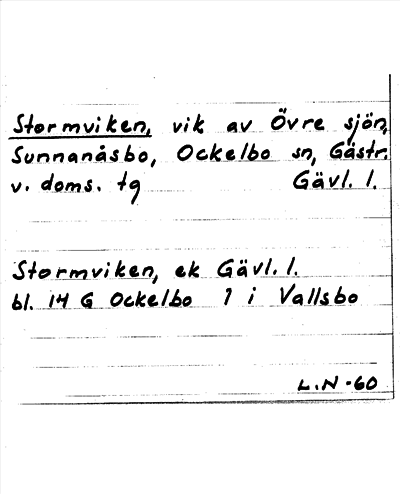 Stormviken, vik av Övre sjön,
Sunnanåsbo, Ockelbo sn, Gästr.
v. doms. tg Gävl. l.
Stormviken, ek Gävl. l.
bl. 14 G Ockelbo 1 i Vallsbo
L.N -60